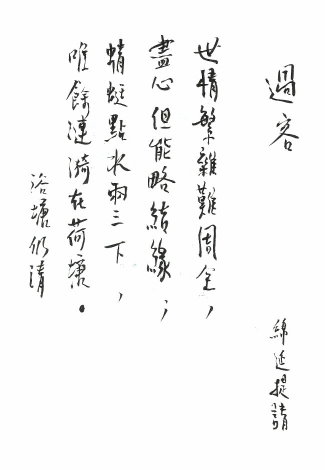 過客
綿延提請
世情繁雜難周全，
盡心但能略結緣；
蜻蜓點水兩三下，
唯餘漣漪在荷塘。
浴塘仍清